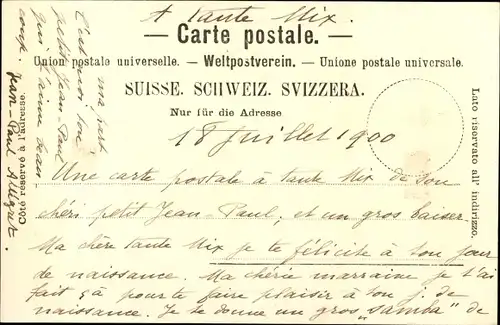 A Tante Mix.
— Carte postale. —
Union postale universelle. — Weltpostverein. — Unione postale universale.
SUISSE. SCHWEIZ. SVIZZERA.
Nur für die Adresse
Côté réservé à l'adresse.
Lato riservato all' indirizzo.
18 Juillet 1900
Une carte postale à tante Mix de son
chéri petit Jean-Paul, et un gros baiser.
Ma chère tante Mix je te félicite à ton jour
de naissance. Ma chérie marraine je t'ai
fait çà pour te faire plaisir à ton j. de
naissance. Je te donne un gros "samba" de
ma part
C'est moi ton
petit Jean-Paul
qui t'aime beau
coup.
Jean-Paul